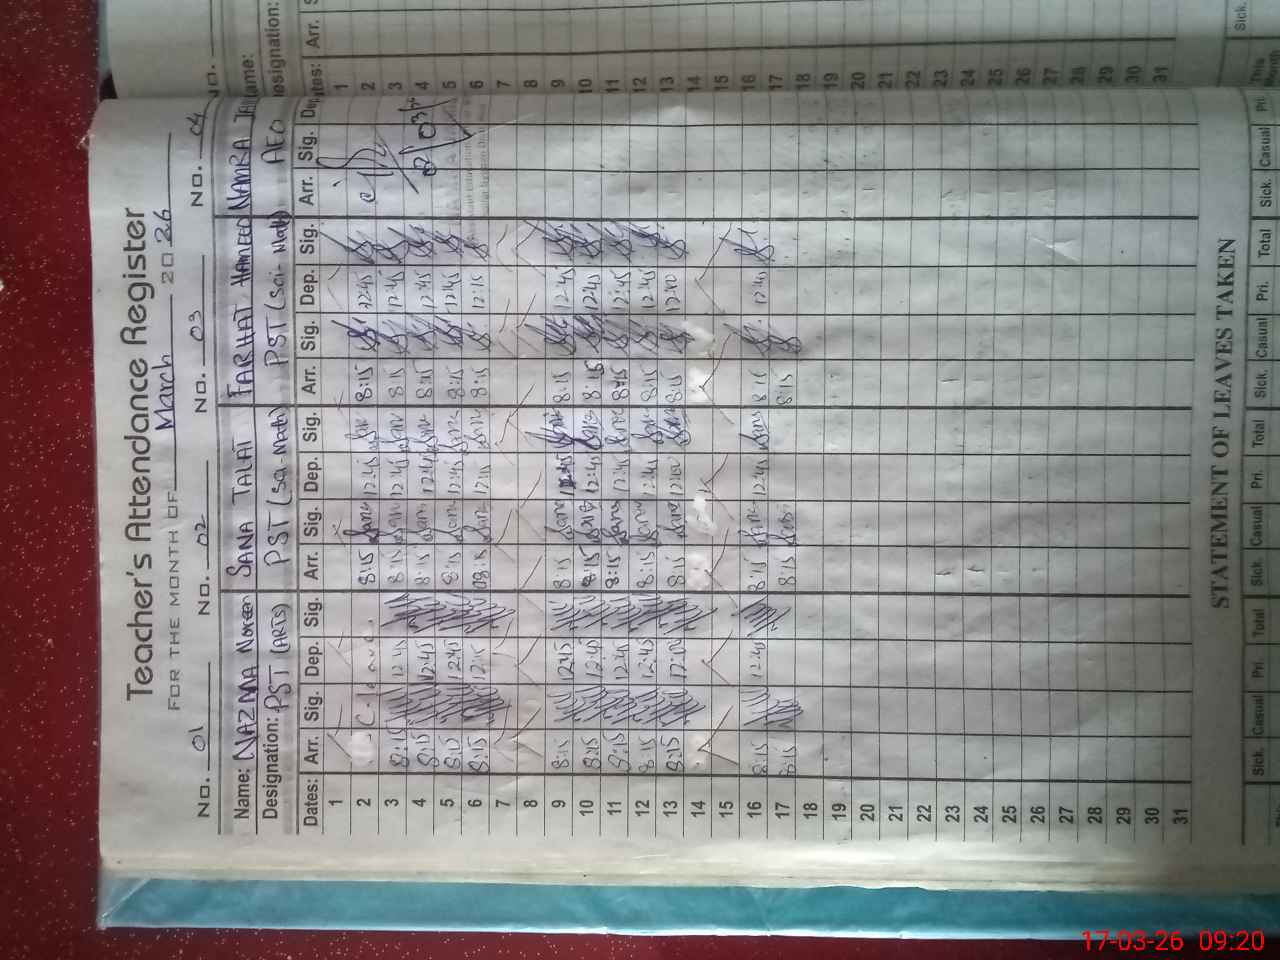 Teacher's Attendance Register
FOR THE MONTH OF March 2026
No. 01 No. 02 No. 03 No. 04
Name: NAZMA Noreen SANA TALAT FARHAT HAMEED NAMRA
Designation: PST (ARTS) PST (Sci-Math) PST (Sci-Math) AEO
Dates: Arr. Sig. Dep. Sig. Arr. Sig. Dep. Sig. Arr. Sig. Dep. Sig. Arr. Sig. Dep.
1
2 C. leave. 8:15 Sana 12:45 Sana 8:15 12:45
3 8:15 12:45 8:15 Sana 12:45 Sana 8:15 12:45
4 8:15 12:45 8:15 Sana 12:45 Sana 8:15 12:45
5 8:15 12:45 8:15 Sana 12:45 Sana 8:15 12:45
6 8:15 12:15 08:15 Sana 12:15 Sana 8:15 12:15
7
8
9 8:15 12:45 8:15 Sana 12:45 Sana 8:15 12:45
10 8:15 12:45 8:15 Sana 12:45 Sana 8:15 12:45
11 8:15 12:45 8:15 Sana 12:45 Sana 8:15 12:45
12 8:15 12:45 8:15 Sana 12:45 Sana 8:15 12:45
13 8:15 12:00 8:15 Sana 12:00 Sana 8:15
14
15
16 8:15 12:45 8:15 Sana 12:45 Sana 8:15 12:45
17 8:15 8:15 Sana 8:15
18
19
20
21
22
23
24
25
26
27
28
29
30
31
STATEMENT OF LEAVES TAKEN
Sick. Casual Pri. Total Sick. Casual Pri. Total Sick. Casual Pri. Total Sick. Casual Pri.
Name:
Designation:
Dates: Arr.
1
2
3
4
5
6
7
8
9
10
11
12
13
14
15
16
17
18
19
20
21
22
23
24
25
26
27
28
29
30
31
Sick.
This Month
17-03-26 09:20